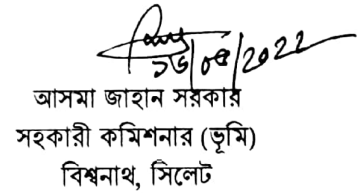 ১৬/০৫/2022
আসমা জাহান সরকার
সহকারী কমিশনার (ভূমি)
বিশ্বনাথ, সিলেট